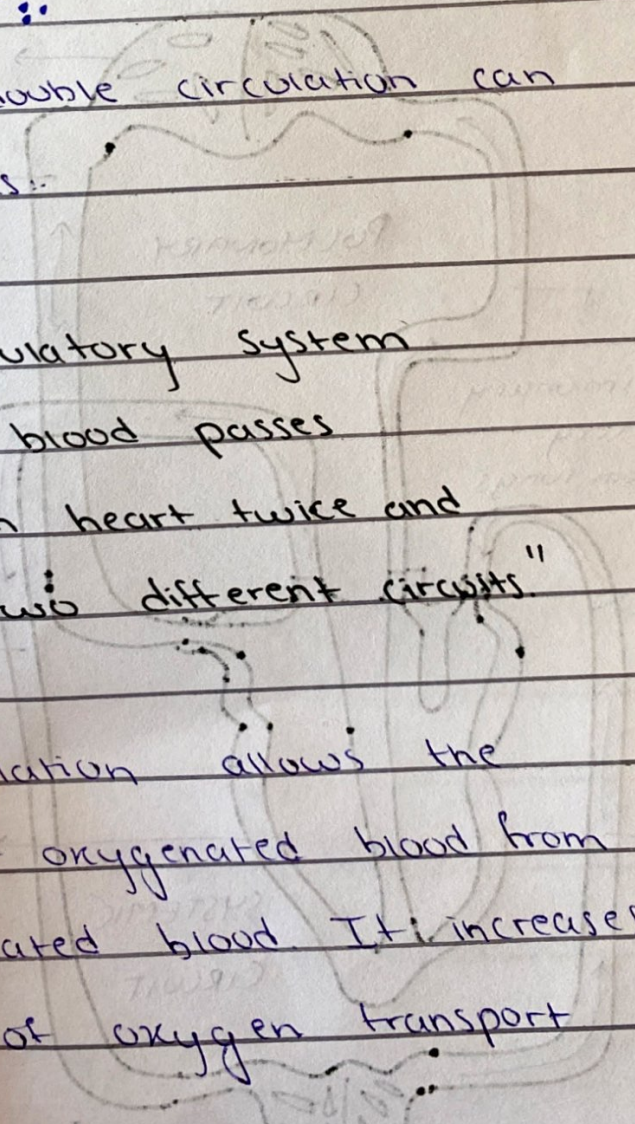 ouble circulation can
s:-
ulatory system
blood passes
n heart twice and
wo different circuits."
lation allows the
oxygenated blood from
ated blood. It increases
of oxygen transport
PULMONARY
CIRCUIT
SYSTEMIC
CIRCUIT